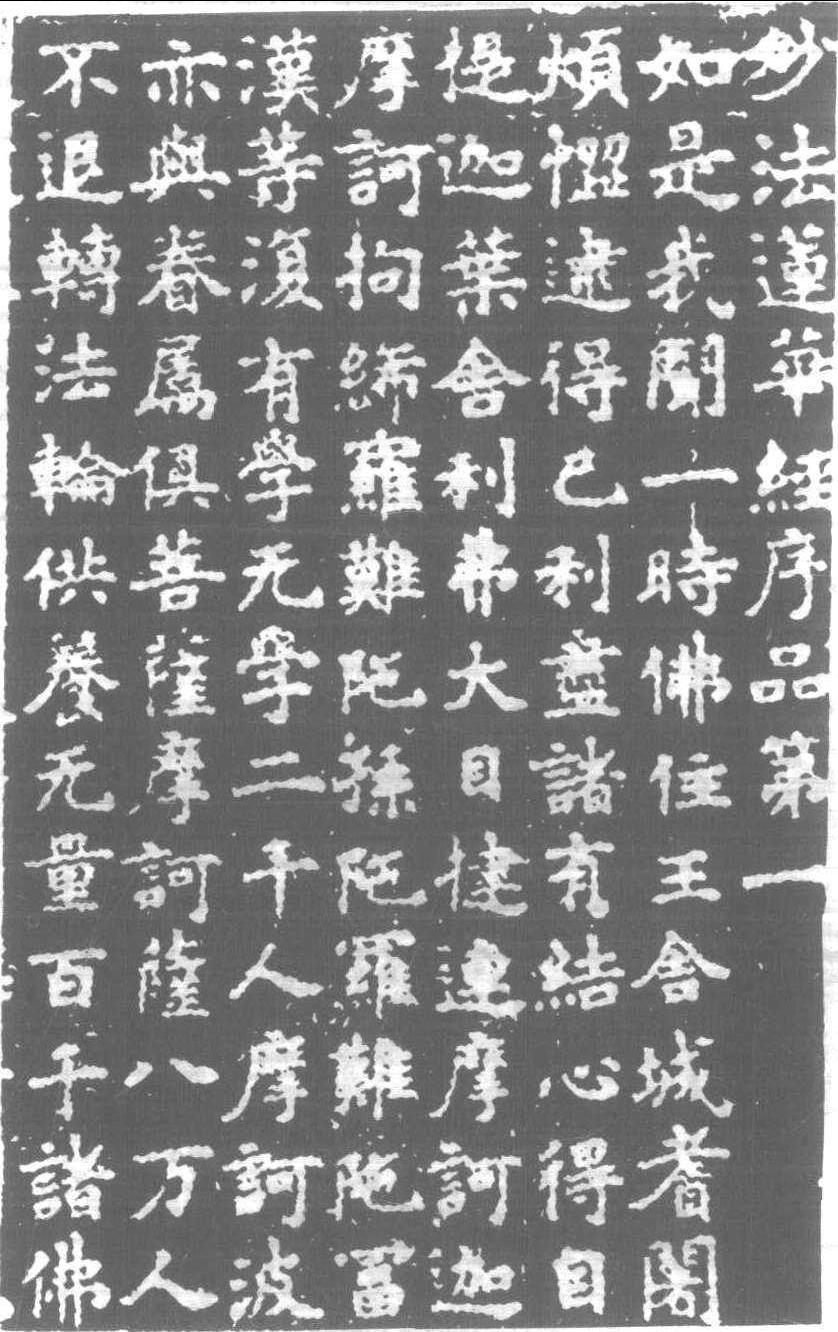 妙法蓮華經序品第一
如是我聞一時佛住王舍城耆闍
煩惱逮得己利盡諸有結心得自
提迦葉舍利弗大目揵連摩訶迦
摩訶拘絺羅難陁孫陁羅難陁富
漢等復有學无學二千人摩訶波
亦與眷属俱菩薩摩訶薩八万人
不退轉法輪供養无量百千諸佛